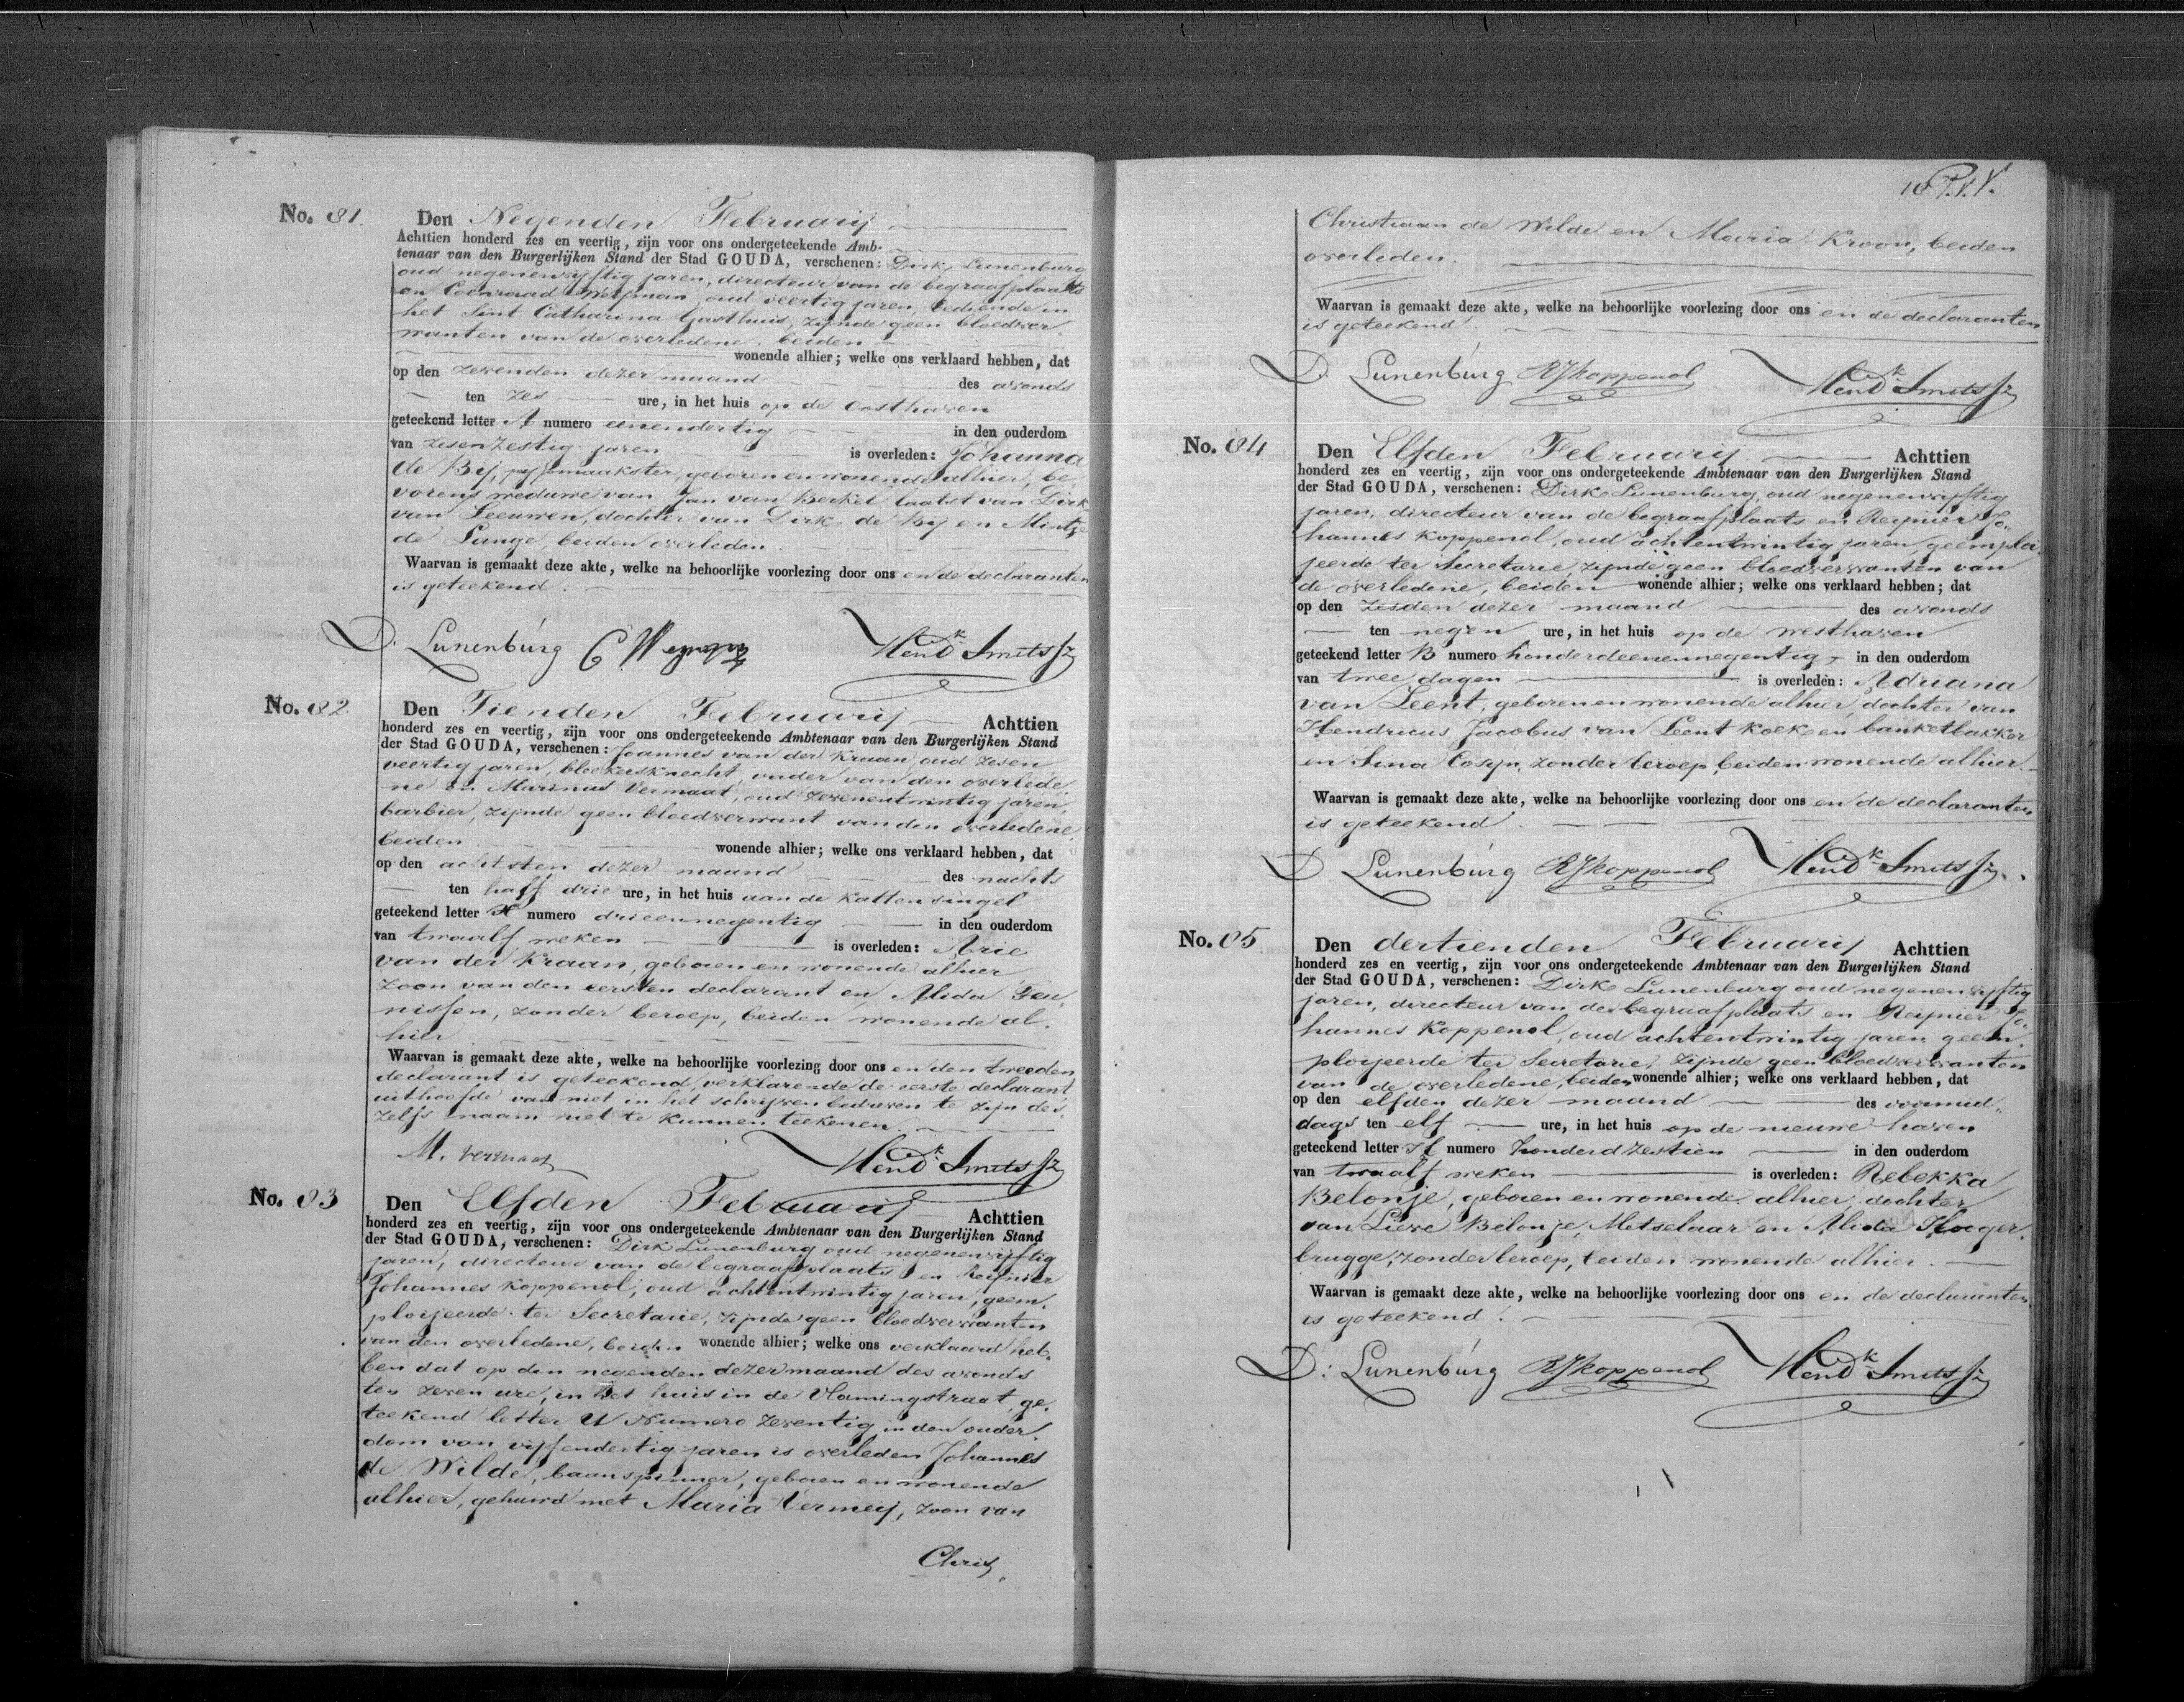 No. 81.
Den Negenden Februarij
Achttien honderd zes en veertig, zijn voor ons ondergeteekende Amb-
tenaar van den Burgerlijken Stand der Stad GOUDA, verschenen: Dirk Lunenburg
oud negenenvijftig jaren, directeur van de begraafplaats
en Coenraad Weijman oud veertig jaren, bediende in
het Sint Catharina Gasthuis, zijnde geen bloedver-
wanten van de overledene, beiden
wonende alhier; welke ons verklaard hebben, dat
op den zevenden dezer maand des avonds
ten zes ure, in het huis op de Oosthaven
geteekend letter A numero eenendertig in den ouderdom
van zesenzestig jaren is overleden: Johanna
de Bij, maakster, geboren en wonende alhier, be-
vorens weduwe van Jan van Berkel laatst van Dirk
van Leeuwen, dochter van Dirk de Bij en Mintze
de Lange, beiden overleden.
Waarvan is gemaakt deze akte, welke na behoorlijke voorlezing door ons en de declaranten
is geteekend.
D. Lunenburg C Weyman Hendk Smits Jz
No. 82
Den Tienden Februarij Achttien
honderd zes en veertig, zijn voor ons ondergeteekende Ambtenaar van den Burgerlijken Stand
der Stad GOUDA, verschenen: Joannes van der Kraan, oud zesen
veertig jaren, blekersknecht, vader van den overlede-
ne en Marinus Vermaat, oud zevenentwintig jaren,
barbier, zijnde geen bloedverwant van den overledene,
beiden wonende alhier; welke ons verklaard hebben, dat
op den achtsten dezer maand des nachts
ten half drie ure, in het huis aan de Kattensingel
geteekend letter H numero drieennegentig in den ouderdom
van twaalf weken is overleden: Arie
van der Kraan, geboren en wonende alhier
zoon van den eersten declarant en Alida Teu-
nissen, zonder beroep, beiden wonende al-
hier
Waarvan is gemaakt deze akte, welke na behoorlijke voorlezing door ons en den tweeden
declarant is geteekend, verklarende de eerste declarant
uithoofde van niet in het schrijven bedreven te zijn des-
zelfs naam niet te kunnen teekenen.
M. vermaat Hendk Smits Jz
No. 83
Den Elfden Februarij Achttien
honderd zes en veertig, zijn voor ons ondergeteekende Ambtenaar van den Burgerlijken Stand
der Stad GOUDA, verschenen: Dirk Lunenburg oud negenenvijftig
jaren, directeur van de begraafplaats en Reijnier
Johannes Koppenol, oud achtentwintig jaren, geem-
ploijeerde ter Secretarie, zijnde geen bloedverwanten
van den overledene, beiden wonende alhier; welke ons verklaard heb-
ben dat op den negenden dezer maand des avonds
ten zeven ure, in het huis in de Vlamingstraat, ge-
teekend letter U Numero zeventig, in den ouder-
dom van vijfendertig jaren is overleden Johannes
de Wilde, baanspinner, geboren en wonende
alhier, gehuwd met Maria Vermeij, zoon van
Chris
10 P.v.V.
Christiaan de Wilde en Maria Kroon, beiden
overleden.
Waarvan is gemaakt deze akte, welke na behoorlijke voorlezing door ons en de declaranten
is geteekend.
D. Lunenburg RJKoppenol Hendk Smits Jz
No. 84
Den Elfden Februarij Achttien
honderd zes en veertig, zijn voor ons ondergeteekende Ambtenaar van den Burgerlijken Stand
der Stad GOUDA, verschenen: Dirk Lunenburg, oud negenenvijftig
jaren, directeur van de begraafplaats en Reijnier Jo-
hannes Koppenol, oud achtentwintig jaren, geëmploi-
jeerde ter Secretarie zijnde geen bloedverwanten van
de overledene, beiden wonende alhier; welke ons verklaard hebben; dat
op den zesden dezer maand des avonds
ten negen ure, in het huis op de westhaven
geteekend letter B numero honderdeenennegentig, in den ouderdom
van twee dagen is overleden: Adriana
van Leent, geboren en wonende alhier, dochter van
Hendricus Jacobus van Leent koek en banketbakker
en Sina Cosijn, zonder beroep, beiden wonende alhier.
Waarvan is gemaakt deze akte, welke na behoorlijke voorlezing door ons en de declaranten
is geteekend.
D Lunenburg RJKoppenol Hendk Smits Jz.
No. 85
Den dertienden Februarij Achttien
honderd zes en veertig, zijn voor ons ondergeteekende Ambtenaar van den Burgerlijken Stand
der Stad GOUDA, verschenen: Dirk Lunenburg oud negenenvijftig
jaren, directeur van de begraafplaats en Reijnier Jo-
hannes Koppenol, oud achtentwintig jaren geem-
ploijeerde ter Secretarie, zijnde geen bloedverwanten
van de overledene, beiden wonende alhier; welke ons verklaard hebben, dat
op den elfden dezer maand des voormid-
dags ten elf ure, in het huis op de nieuwe haven
geteekend letter H numero honderd zestien in den ouderdom
van twaalf weken is overleden: Rebekka
Belonje, geboren en wonende alhier, dochter
van Lieve Belonje, Metselaar en Alida Hoeger-
brugge, zonder beroep, beiden wonende alhier.
Waarvan is gemaakt deze akte, welke na behoorlijke voorlezing door ons en de declaranten
is geteekend.
D: Lunenburg RJKoppenol Hendk Smits Jz